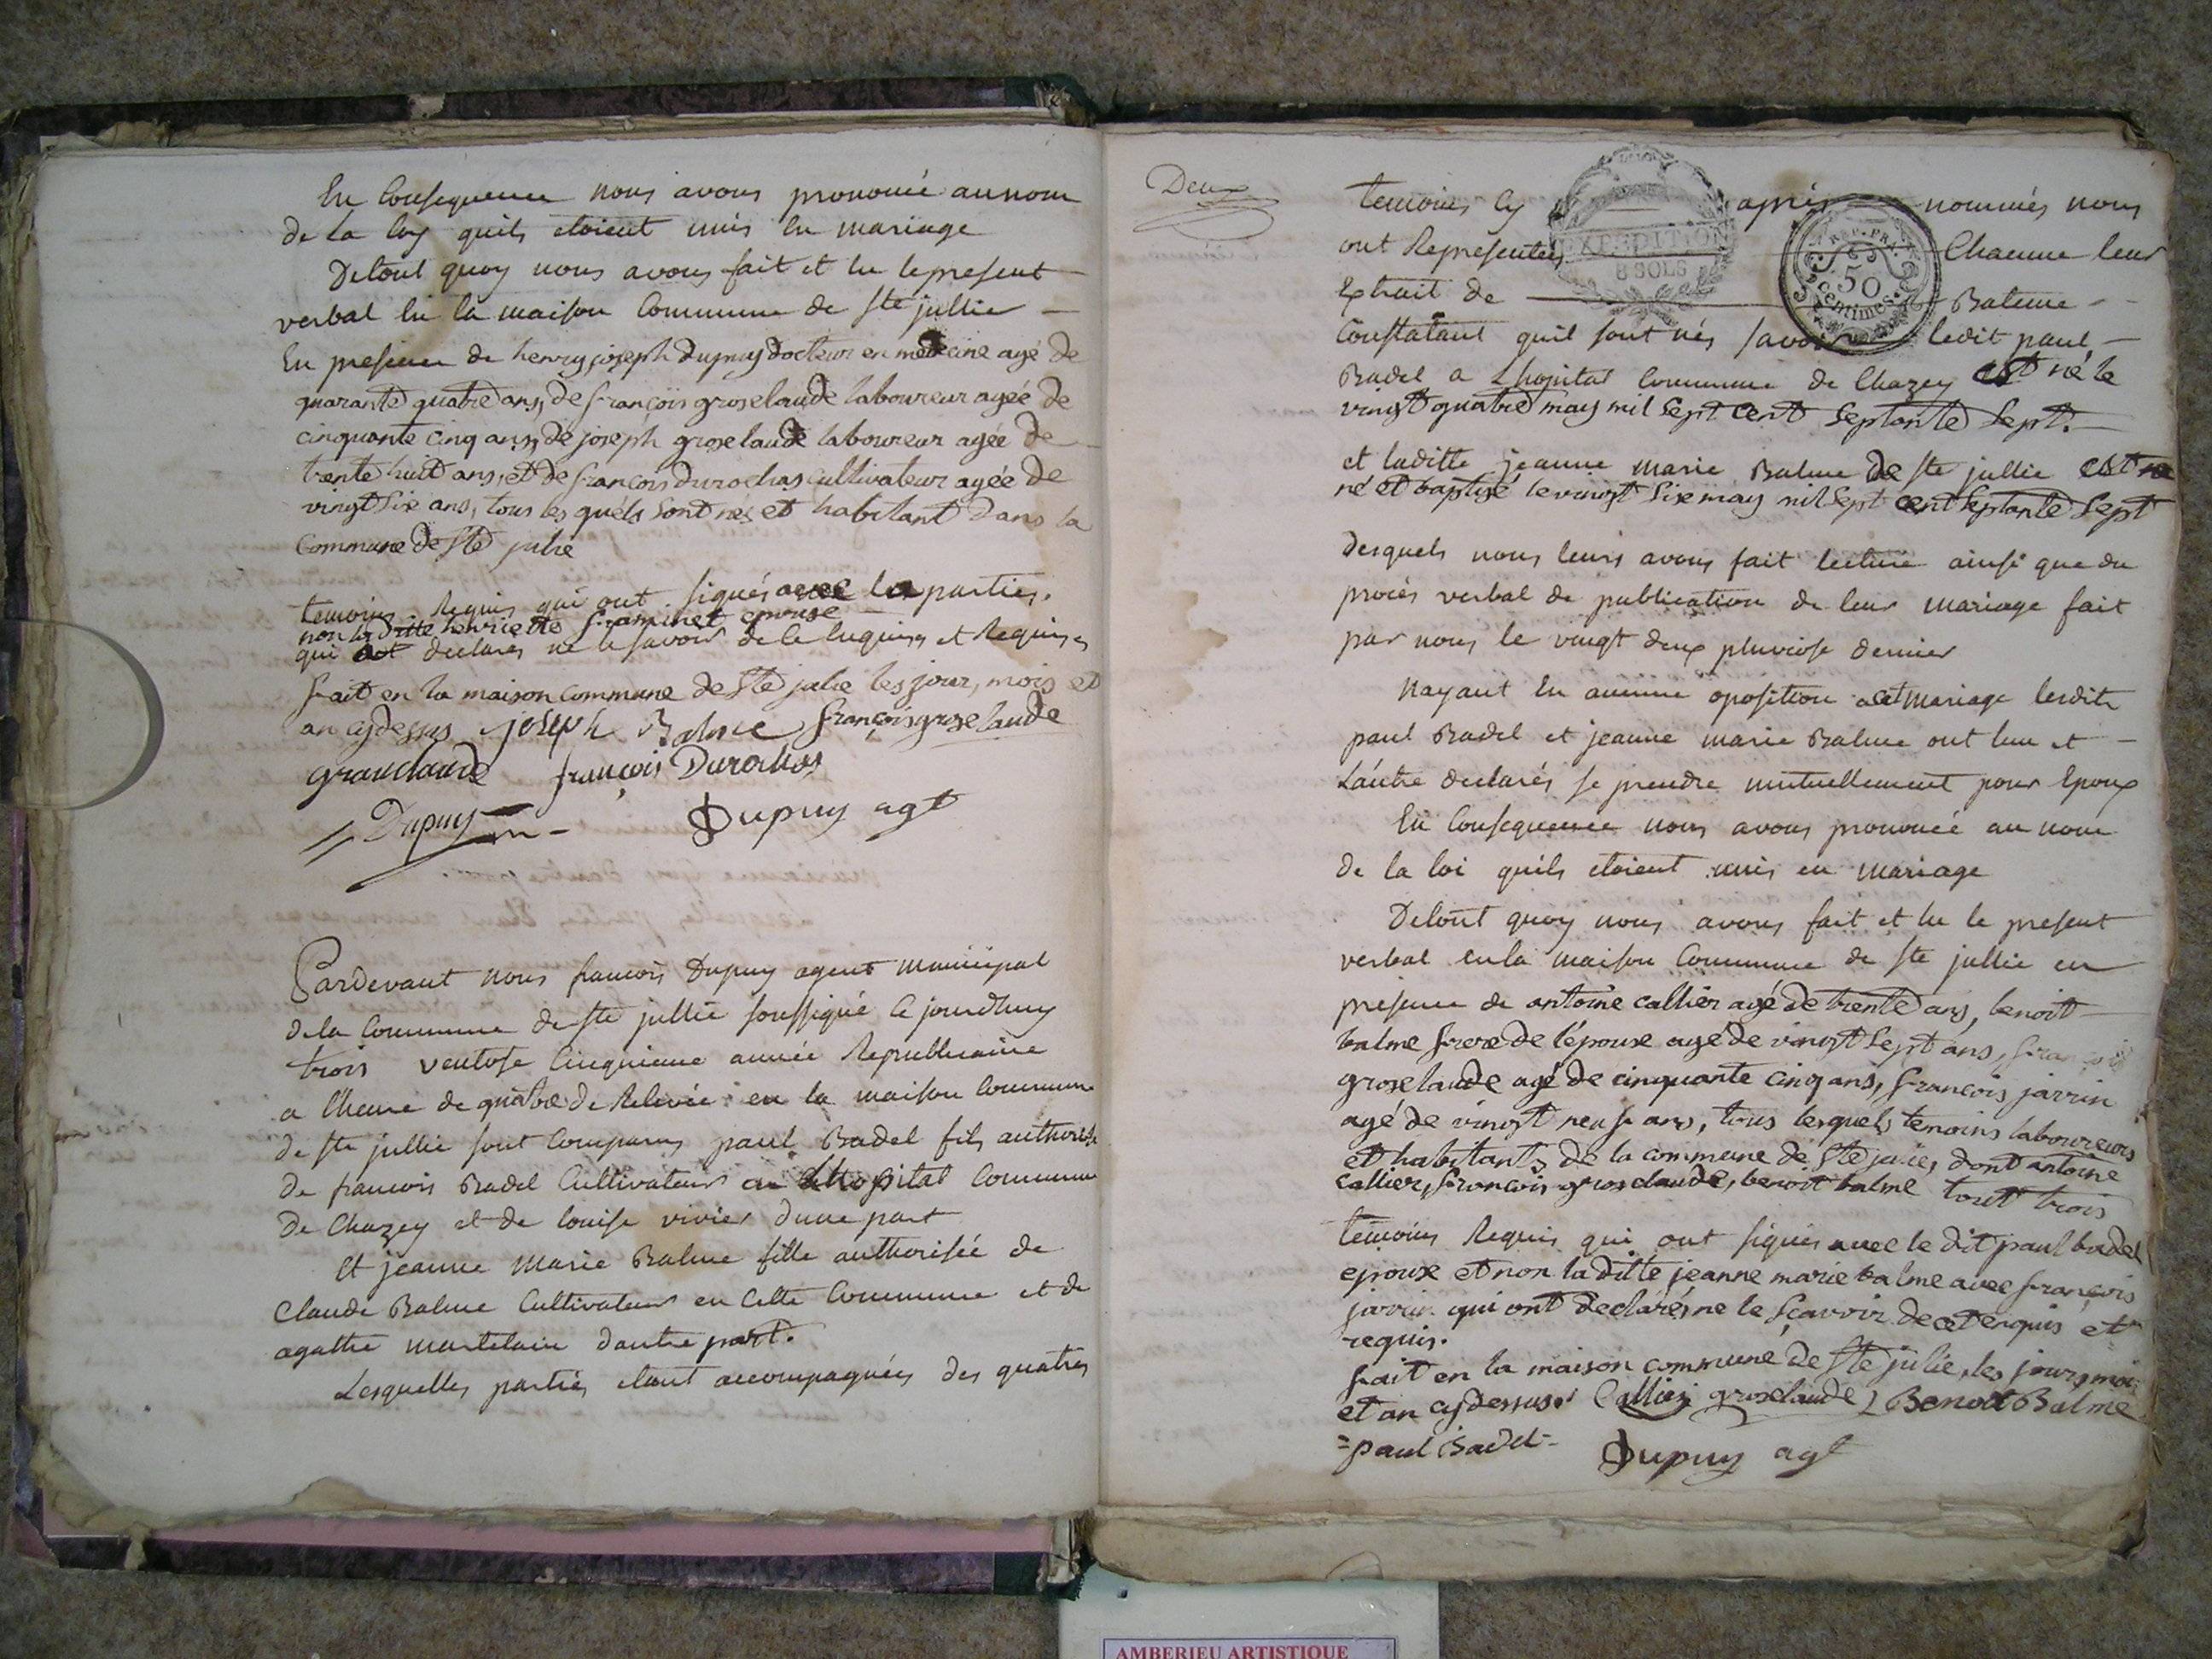 En Consequence nous avons prononcé au nom
de la loy quils etoient unis en mariage
De tout quoy nous avons fait et lu le present
verbal en la maison Commune de ste jullie
En presence de henry joseph dupuy docteur en medecine agé de
quarante quatre ans, de françois groselaude laboureur agéé de
cinquante cinq ans, de joseph groselaude laboureur agéé de
trente huit ans, et de françois durochas cultivateur agéé de
vingt six ans, tous les quéls sont nés et habitant dans la
commune de Ste julie
temoins Requis qui ont signés avec la parties.
non la ditte henriette framinet epouse
qui ont declarés ne le savoir de ce Enquises et Requises
fait en la maison commune de Ste julie les jour, mois et
an cydessus joseph Balme françois groselaude
grauclaude françois Durochas
Dupuy
Dupuy agt
Pardevant nous francois Dupuy agent municipal
de la Commune de ste jullie soussigné Ce jourdhuy
trois ventose Cinquieme année Republicaine
a lheure de quatre de Relevée en la maison Commune
de ste jullie sont Comparus paul Badel fils authorisé
de francois Badel Cultivateur en Lhopital Commune
de Chazey et de louise vivier dune part
Et jeanne Marie Balme fille authorisée de
Claude Balme Cultivateur en Cette Commune et de
agathe martelain dautre part.
Lesquelles parties etant accompagnées des quatres
Deux
temoins Cy après nommés nous
EXPEDITION
8 SOLS
REP. FRA.
50
centimes
ont Representées Chacune leur
Extrait de Bateme
Constatant quil sont nés savoir ledit paul
Badel a Lhopital Commune de Chazey est né le
vingt quatre may mil sept cent septante sept.
et laditte jeanne marie Balme de ste jullie est
né et baptisé le vingt six may mil sept cent septante sept
desquels nous leurs avons fait lecture ainsi que du
procès verbal de publication de leur mariage fait
par nous le vingt deux pluviose dernier
Nayant Eu aucune oposition acet mariage lesdits
paul Badel et jeanne marie Balme ont lun et
Lautre declarés se prendre mutuellement pour Epoux
En Consequence nous avons prononcé au nom
de la loi quils etoient unis en mariage
De tout quoy nous avons fait et lu le present
verbal en la maison Commune de ste jullie en
presence de antoine callier agé de trente ans, benoit
balme frere de l'épouse agé de vingt sept ans, françois
groselaude agé de cinquante cinq ans, françois jarrin
agé de vingt neuf ans, tous lesquels temoins laboureurs
et habitants de la commune de Ste julie, dont antoine
callier, françois grosclaude, benoit balme tout trois
temoins Requis qui ont signés avec le dit paul badel
epoux et non la ditte jeanne marie balme avec françois
jarrin qui ont declarés ne le sçavoir de cet enquis et
requis.
fait en la maison commune de Ste julie, les jours, moi
et an cydessus. Callier groselaude Benoit Balme
=paul Badel= Dupuy agt
AMBERIEU ARTISTIQUE